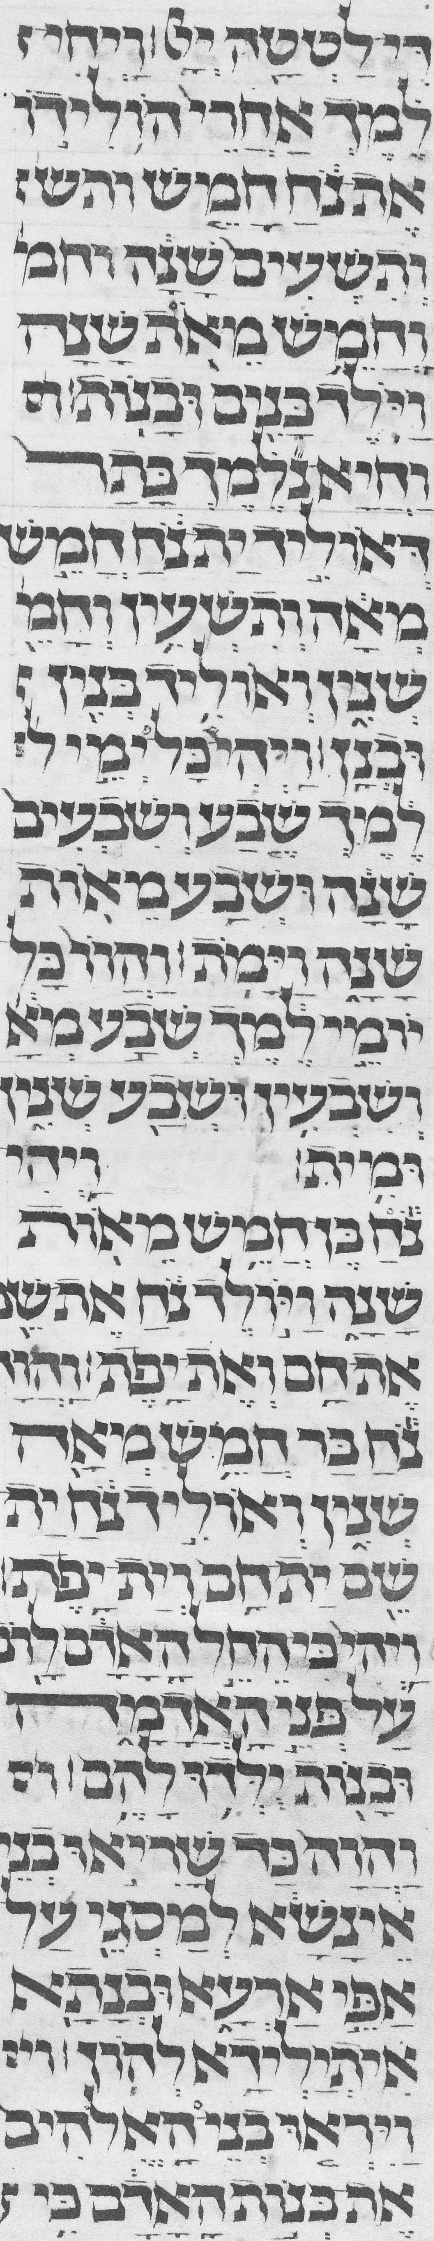 דִּי לַטְטַהּ יְיָ׃ וַיְחִי
לֶמֶךְ אַחֲרֵי הוֹלִידוֹ
אֶת נֹחַ חָמֵשׁ ותש
וְתִשְׁעִים שָׁנָה וחמ
וַחֲמֵשׁ מֵאֹת שָׁנָה
וַיּוֹלֶד בָּנִים וּבָנוֹת׃
וַחֲיָא לֶמֶךְ בָּתַר
דְּאוֹלֵיד יָת נֹחַ חֲמֵשׁ
מְאָה וְתִשְׁעִין וַחֲמֵ
שְׁנִין וְאוֹלֵיד בְּנִין
וּבְנָן׃ וַיְהִי כָּל יְמֵי ל
לֶמֶךְ שֶׁבַע וְשִׁבְעִים
שָׁנָה וּשְׁבַע מֵאוֹת
שָׁנָה וַיָּמֹת׃ וַהֲווֹ כָּל
יוֹמֵי לֶמֶךְ שְׁבַע מְאָ
וְשִׁבְעִין וּשְׁבַע שְׁנִין
וּמִית׃ וַיְהִי
נֹחַ בֶּן חֲמֵשׁ מֵאוֹת
שָׁנָה וַיּוֹלֶד נֹחַ אֶת שֵׁם
אֶת חָם וְאֶת יָפֶת׃ וַהֲוָה
נֹחַ בַּר חֲמֵשׁ מְאָה
שְׁנִין וְאוֹלֵיד נֹחַ יָת
שֵׁם יָת חָם וְיָת יָפֶת׃
וַיְהִי כִּי הֵחֵל הָאָדָם לָרֹב
עַל פְּנֵי הָאֲדָמָה
וּבָנוֹת יֻלְּדוּ לָהֶם׃
וַהֲוָה כַּד שָׁרִיאוּ בְּנֵי
אֱינָשָׁא לְמִסְגֵּי עַל
אַפֵּי אַרְעָא וּבְנָתָא
אִיתְיְלִידָא לְהוֹן׃
וַיִּרְאוּ בְנֵי הָאֱלֹהִים
אֶת בְּנוֹת הָאָדָם כִּי